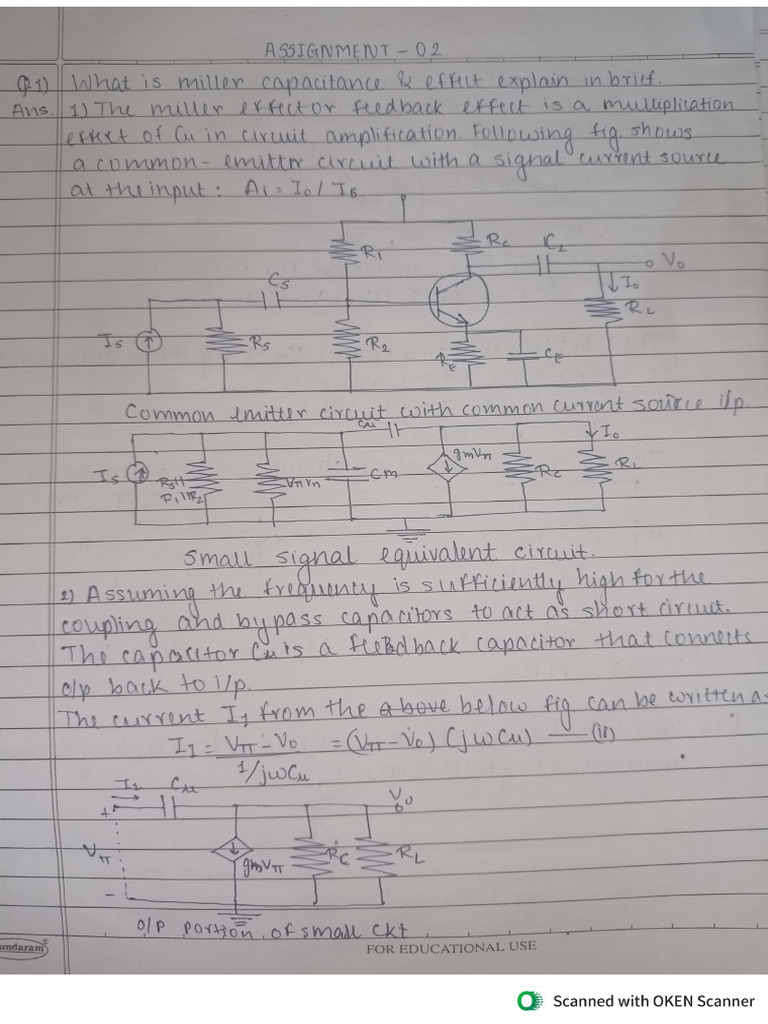 ASSIGNMENT - 02
Q.1) What is miller capacitance & effect explain in brief.
Ans. 1) The miller effect or feedback effect is a multiplication
effect of Cu in circuit amplification. Following fig. shows
a common-emitter circuit with a signal current source
at the input: Ai = Io / Is
R1
Rc
C2
Vo
Io
RL
Cs
Is
Rs
R2
RE
CE
Common emitter circuit with common current source i/p.
Cu
Io
Is
Rs11
R111R2
Vπ rπ
Cm
gmVπ
Rc
RL
Small signal equivalent circuit.
2) Assuming the frequency is sufficiently high for the
coupling and bypass capacitors to act as short circuit.
The capacitor Cu is a feedback capacitor that connects
o/p back to i/p.
The current I1 from the above below fig. can be written as
I1 = Vπ - Vo = (Vπ - Vo) (jwCu) — (ii)
1/jwCu
I1
Cu
+
Vo
Vπ
gmVπ
RC
RL
-
O/P portion of small ckt
undaram®
FOR EDUCATIONAL USE
Scanned with OKEN Scanner